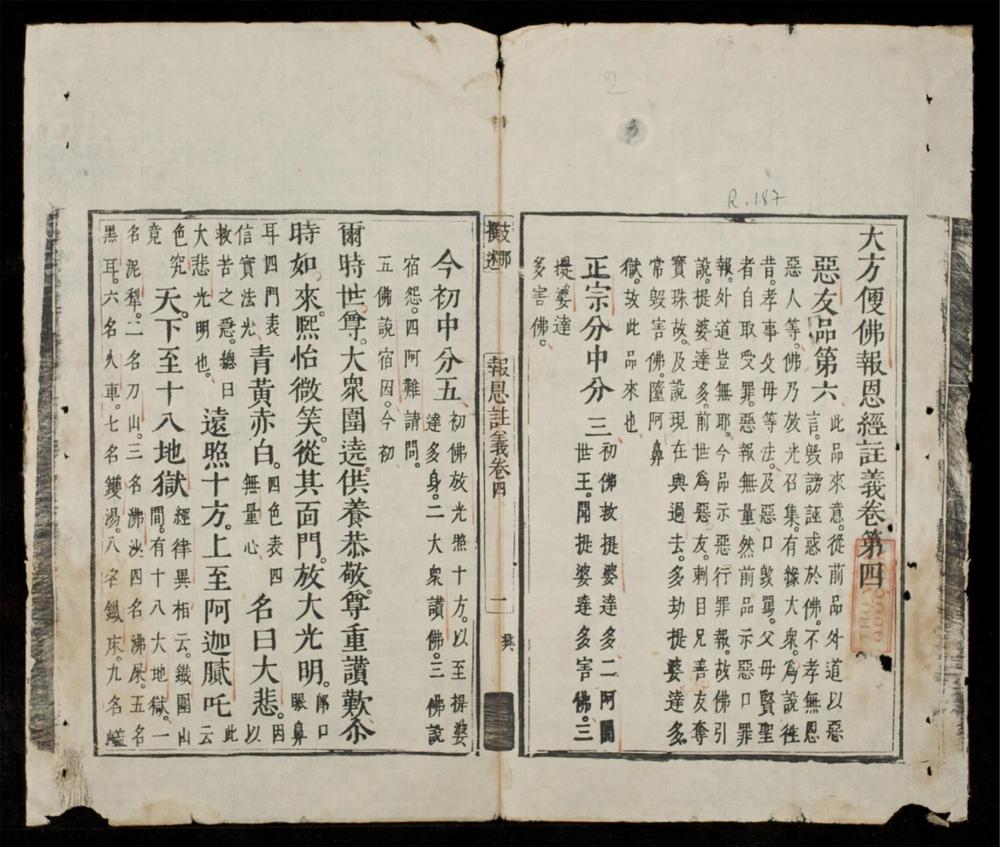 R.187
2
大方便佛報恩經註義卷第四
惡友品第六 此品來意。從前品外道以惡
言。毀謗誣惑於佛。不孝無恩
惡人等。佛乃放光召集。有緣大衆。爲說往
昔。孝事父母等法。及惡口毀罵。父母賢聖
者自取受罪。惡報無量。然前品示惡口罪
報。外道豈無耶。今品示惡行罪報。故佛引
說。提婆達多。前世爲惡友。刺目兄善友奪
寶珠故。及說現在與過去。多劫提婆達多
常毀害佛。墮阿鼻
獄。故此品來也
正宗分中分三 初佛放提婆達多二阿闍
世王。聞提婆達多害佛。三
提婆達
多害佛。
報恩註義卷四
二
今初中分五 初佛放光照十方。以至提婆
達多身。二大衆讚佛。三佛說
宿怨。四阿難請問。
五佛說宿因。今初
爾時世尊。大衆圍遶。供養恭敬。尊重讚歎尒
時如來。熙怡微笑。從其面門。放大光明。即口
眼鼻
耳四門表
信實法光 青黃赤白。四色表四
無量心 名曰大悲。因
以
救苦之慈。總曰
大悲光明也。 遠照十方。上至阿迦膩吒 此
云
色究
竟 天。下至十八地獄 經律異相云。鐵圍山
間。有十八大地獄。一
名泥犂。二名刀山。三名沸沙四名沸屎。五名
黑耳。六名火車。七名鑊湯。八名鐵床。九名𡺸